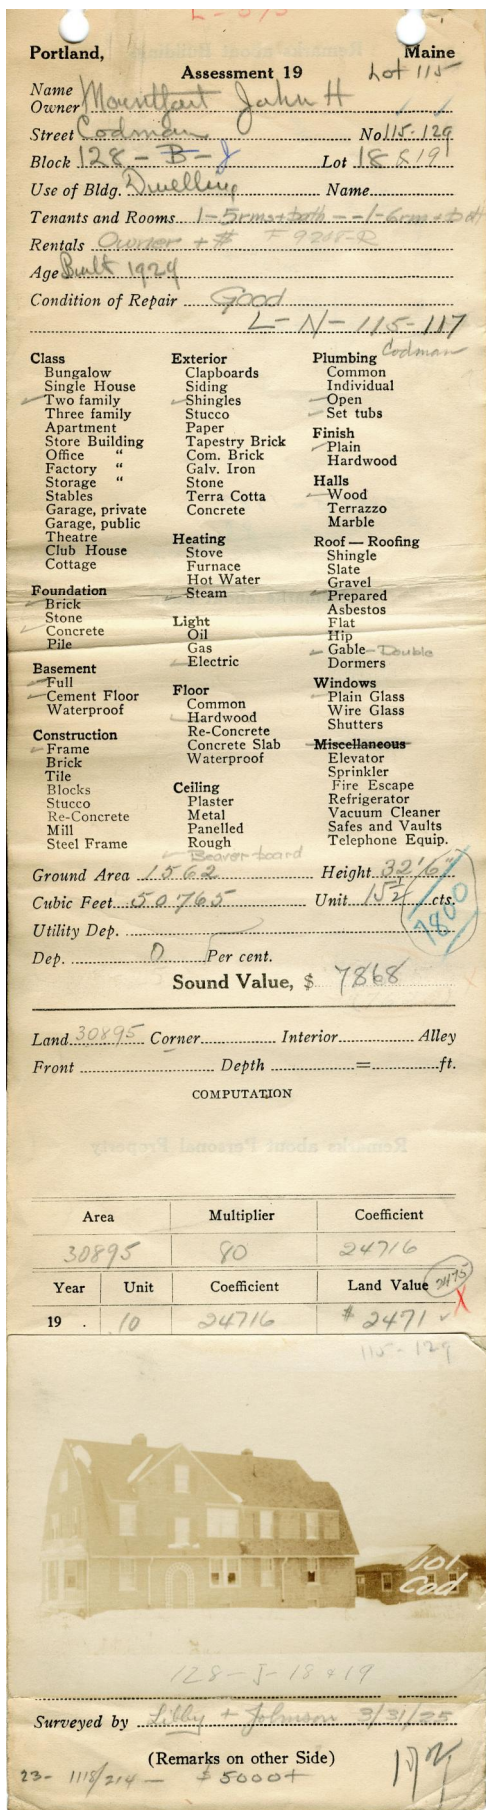 L-
Portland, Maine
Assessment 19 Lot 115
Name
Owner Mountfort John H
Street Codman No 115-129
Block 128-B-J Lot 18 & 19
Use of Bldg. Dwelling Name
Tenants and Rooms 1-5rms+bath--1-6rms+bath
Rentals Owner + $ F 9208-R
Age Built 1924
Condition of Repair Good
L-N-115-117
Codman
Class
Bungalow
Single House
Two family
Three family
Apartment
Store Building
Office "
Factory "
Storage "
Stables
Garage, private
Garage, public
Theatre
Club House
Cottage
Foundation
Brick
Stone
Concrete
Pile
Basement
Full
Cement Floor
Waterproof
Construction
Frame
Brick
Tile
Blocks
Stucco
Re-Concrete
Mill
Steel Frame
Exterior
Clapboards
Siding
Shingles
Stucco
Paper
Tapestry Brick
Com. Brick
Galv. Iron
Stone
Terra Cotta
Concrete
Heating
Stove
Furnace
Hot Water
Steam
Light
Oil
Gas
Electric
Floor
Common
Hardwood
Re-Concrete
Concrete Slab
Waterproof
Ceiling
Plaster
Metal
Panelled
Rough
Beaver board
Plumbing
Common
Individual
Open
Set tubs
Finish
Plain
Hardwood
Halls
Wood
Terrazzo
Marble
Roof — Roofing
Shingle
Slate
Gravel
Prepared
Asbestos
Flat
Hip
Gable - Double
Dormers
Windows
Plain Glass
Wire Glass
Shutters
Miscellaneous
Elevator
Sprinkler
Fire Escape
Refrigerator
Vacuum Cleaner
Safes and Vaults
Telephone Equip.
Ground Area 1562 Height 32'6"
Cubic Feet 50765 Unit 15½ cts.
7800
Utility Dep.
Dep. 0 Per cent.
Sound Value, $ 7868
Land 30895 Corner Interior Alley
Front Depth = ft.
COMPUTATION
Remarks about Personal Property
Area Multiplier Coefficient
30895 80 24716
Year Unit Coefficient Land Value 2475
19 . 10 24716 $ 2471 X
115-129
101
Cod
128-J-18&19
Surveyed by Libby + Johnson 3/31/25
(Remarks on other Side)
23- 1118/214 - $5000+